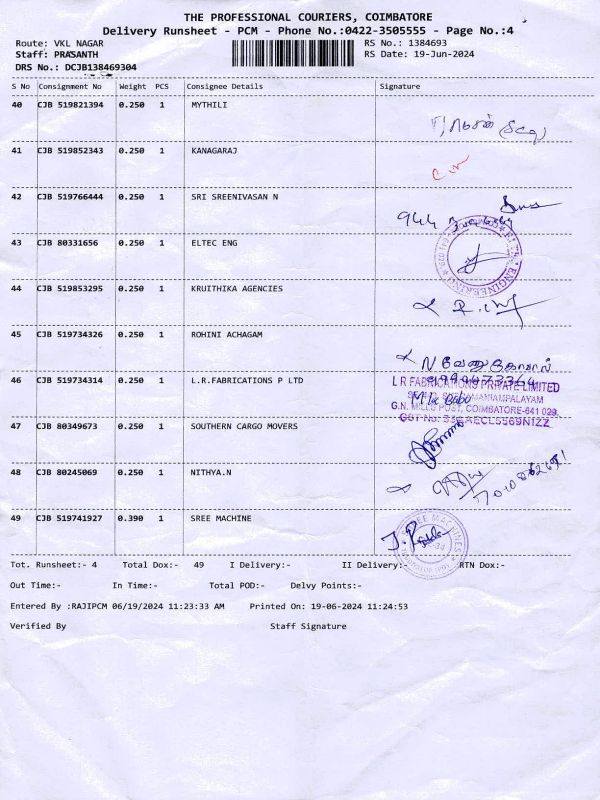 THE PROFESSIONAL COURIERS, COIMBATORE
Delivery Runsheet - PCM - Phone No.:0422-3505555 - Page No.:4
Route: VKL NAGAR RS No.: 1384693
Staff: PRASANTH RS Date: 19-Jun-2024
DRS No.: DCJB138469304
S No Consignment No Weight PCS Consignee Details Signature
40 CJB 519821394 0.250 1 MYTHILI
41 CJB 519852343 0.250 1 KANAGARAJ
42 CJB 519766444 0.250 1 SRI SREENIVASAN N
43 CJB 80331656 0.250 1 ELTEC ENG
ENGINEERING
44 CJB 519853295 0.250 1 KRUITHIKA AGENCIES
45 CJB 519734326 0.250 1 ROHINI ACHAGAM
N வேணுகோபால்
46 CJB 519734314 0.250 1 L.R.FABRICATIONS P LTD
L R FABRICATIONS PRIVATE LIMITED
G.N. MILLS POST, COIMBATORE-641 029.
47 CJB 80349673 0.250 1 SOUTHERN CARGO MOVERS
48 CJB 80245069 0.250 1 NITHYA.N
49 CJB 519741927 0.390 1 SREE MACHINE
SREE MACHINES
Tot. Runsheet:- 4 Total Dox:- 49 I Delivery:- II Delivery:- RTN Dox:-
Out Time:- In Time:- Total POD:- Delvy Points:-
Entered By :RAJIPCM 06/19/2024 11:23:33 AM Printed On: 19-06-2024 11:24:53
Verified By Staff Signature